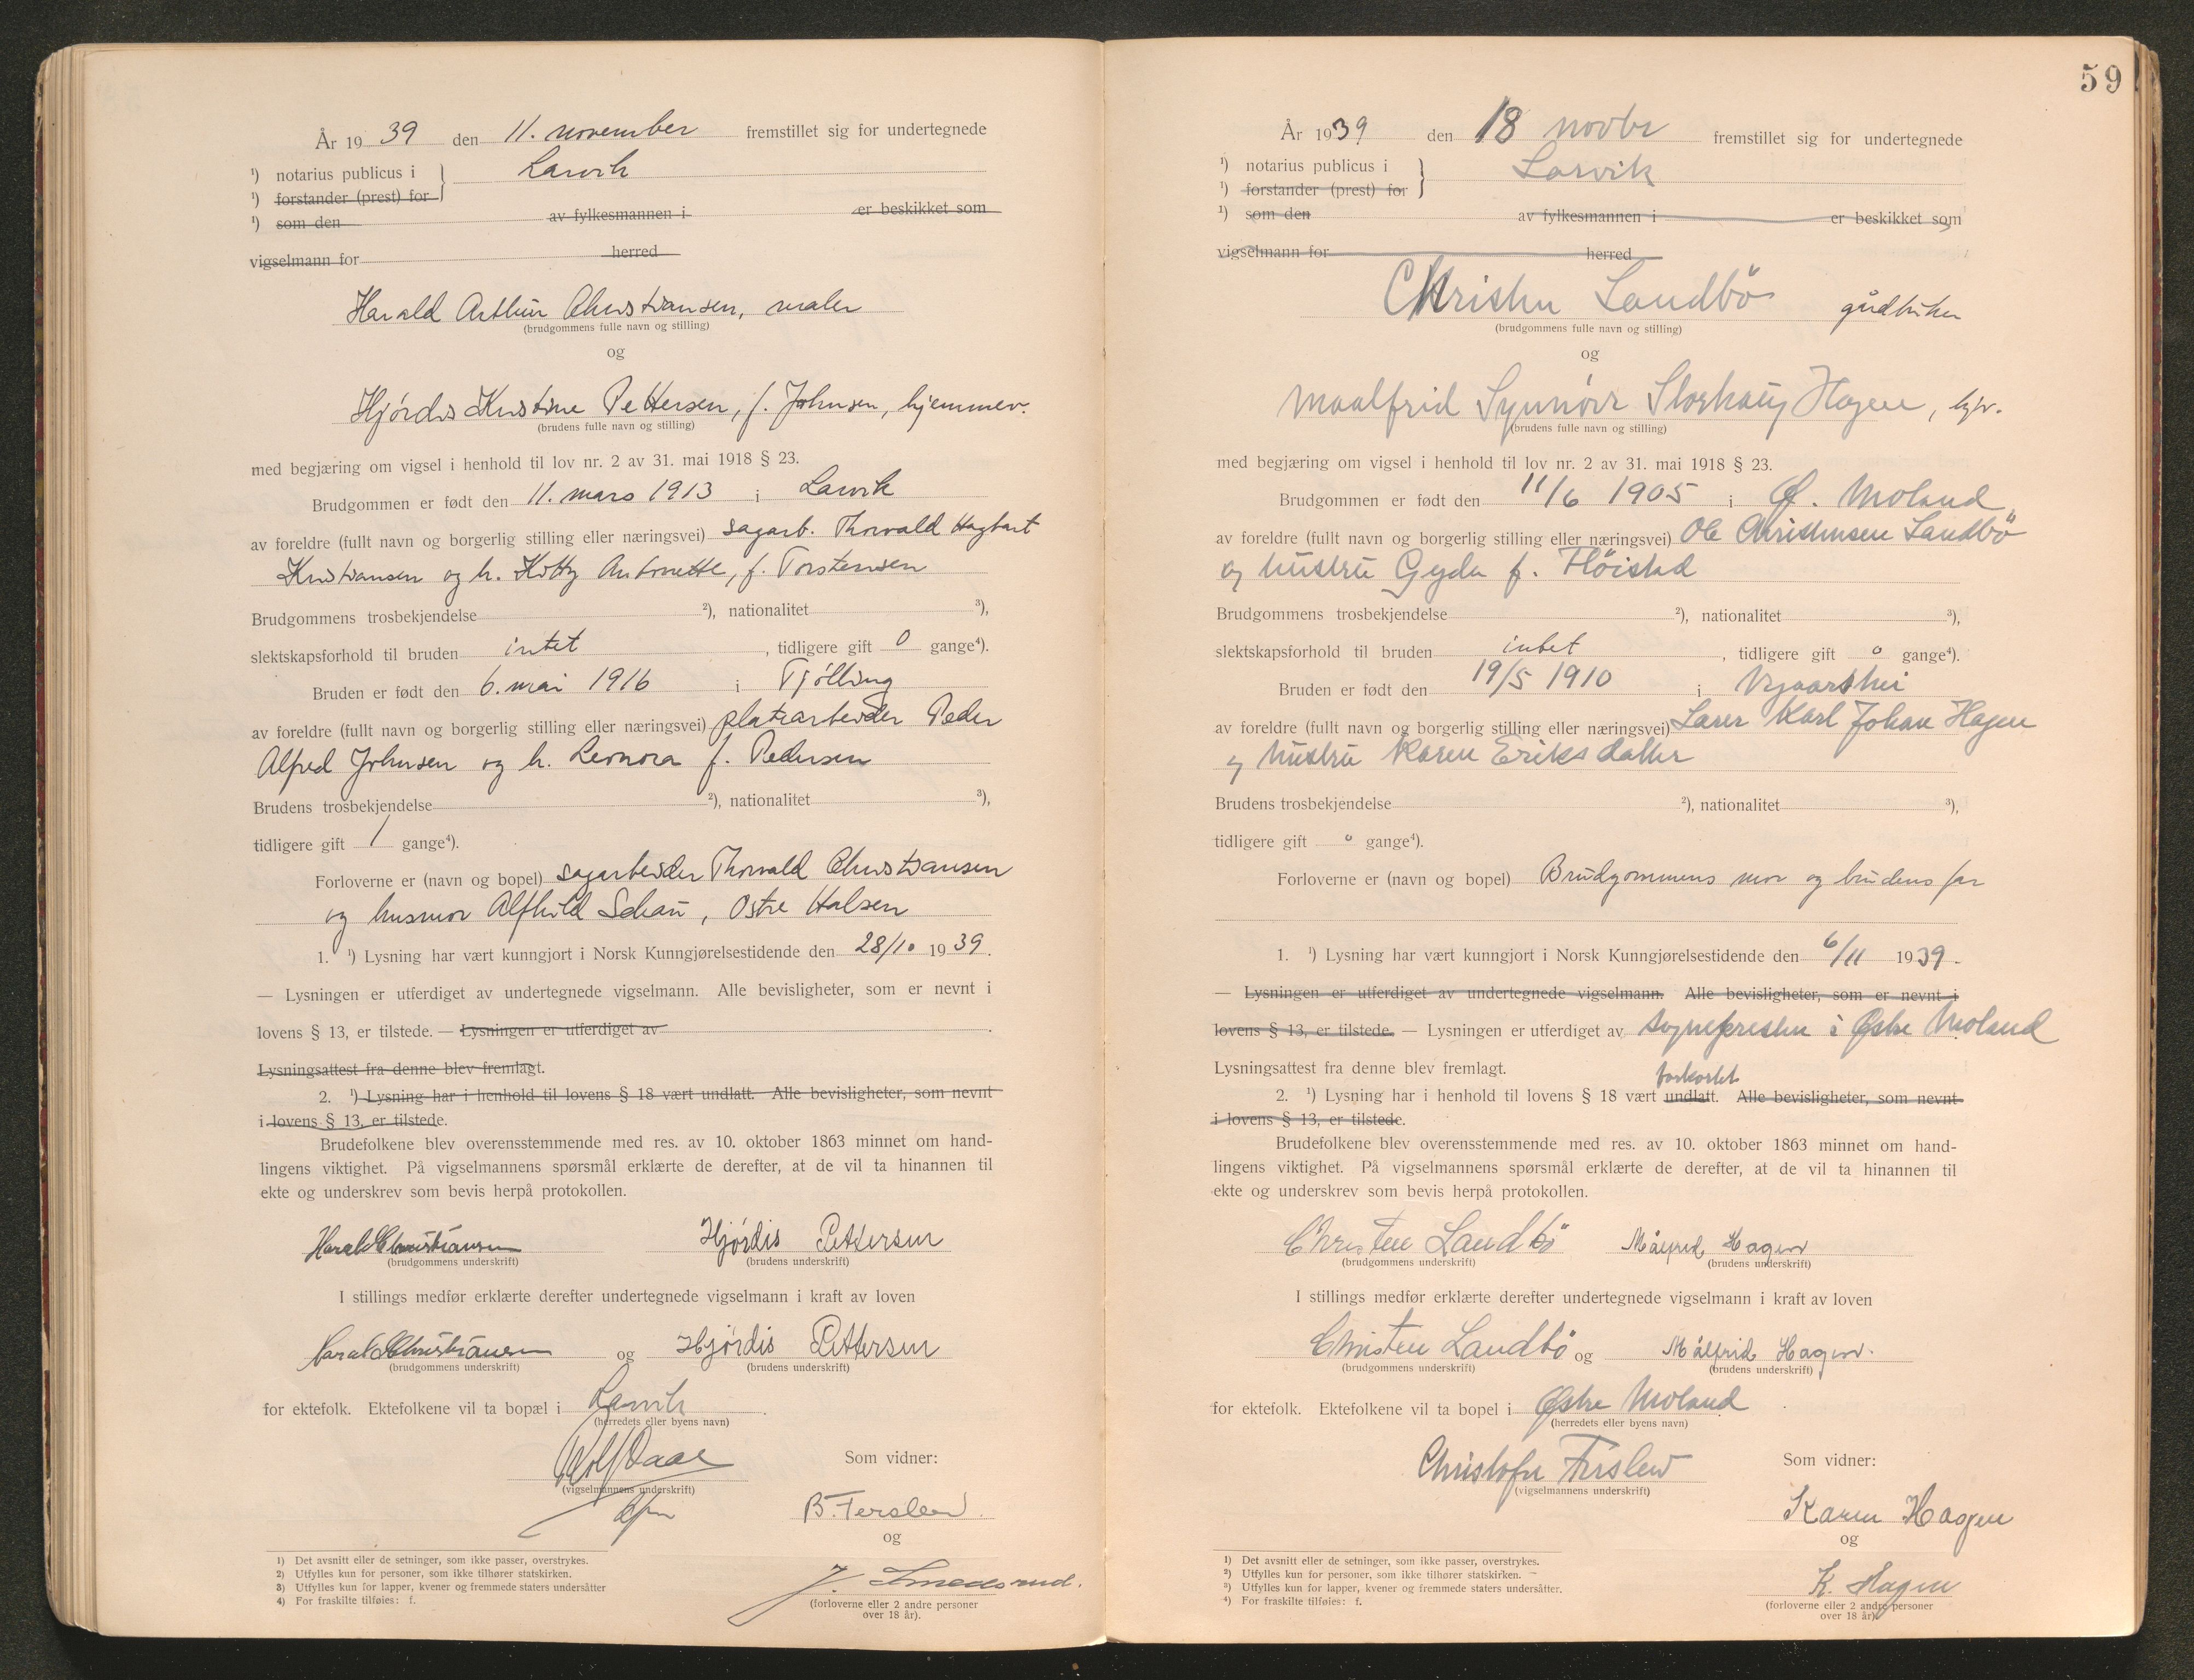 År 1939 den 11. november fremstillet sig for undertegnede
¹) notarius publicus i } Larvik
¹) forstander (prest) for
¹) som den av fylkesmannen i er beskikket som
vigselmann for herred
Harald Arthur Christiansen, maler
(brudgommens fulle navn og stilling)
og
Hjørdis Kristine Pettersen, f. Johnsen, hjemmev.
(brudens fulle navn og stilling)
med begjæring om vigsel i henhold til lov nr. 2 av 31. mai 1918 § 23.
Brudgommen er født den 11. mars 1913 i Larvik
av foreldre (fullt navn og borgerlig stilling eller næringsvei) sagarb. Thorvald Hagbart
Kristiansen og h. Kitty Antonette, f. Torstensen
Brudgommens trosbekjendelse ²), nationalitet ³),
slektskapsforhold til bruden intet, tidligere gift 0 gange⁴).
Bruden er født den 6. mai 1916 i Tjølling
av foreldre (fullt navn og borgerlig stilling eller næringsvei) platearbeider Peder
Alfred Johnsen og h. Leonora f. Pedersen
Brudens trosbekjendelse ²), nationalitet ³),
tidligere gift 1 gange⁴).
Forloverne er (navn og bopel) sagarbeider Thorvald Christiansen
og husmor Alfhild Schau, Østre Halsen
1. ¹) Lysning har vært kunngjort i Norsk Kunngjørelsestidende den 28/10 1939.
— Lysningen er utferdiget av undertegnede vigselmann. Alle bevisligheter, som er nevnt i
lovens § 13, er tilstede. — Lysningen er utferdiget av .
Lysningsattest fra denne blev fremlagt.
2. ¹) Lysning har i henhold til lovens § 18 vært undlatt. Alle bevisligheter, som nevnt
i lovens § 13, er tilstede.
Brudefolkene blev overensstemmende med res. av 10. oktober 1863 minnet om hand-
lingens viktighet. På vigselmannens spørsmål erklærte de derefter, at de vil ta hinannen til
ekte og underskrev som bevis herpå protokollen.
Harald Christiansen Hjørdis Pettersen
(brudgommens underskrift) (brudens underskrift)
I stillings medfør erklærte derefter undertegnede vigselmann i kraft av loven
Harald Christiansen og Hjørdis Pettersen
(brudgommens underskrift) (brudens underskrift)
for ektefolk. Ektefolkene vil ta bopæl i Larvik .
(herredets eller byens navn)
Rolf Daae Som vidner:
(vigselmannens underskrift)
B. Terslew.
og
J. Smedsrud.
(forloverne eller 2 andre personer
over 18 år).
1) Det avsnitt eller de setninger, som ikke passer, overstrykes.
2) Utfylles kun for personer, som ikke tilhører statskirken.
3) Utfylles kun for lapper, kvener og fremmede staters undersåtter
4) For fraskilte tilføies: f.
59
År 1939 den 18 novbr fremstillet sig for undertegnede
¹) notarius publicus i } Larvik
¹) forstander (prest) for
¹) som den av fylkesmannen i er beskikket som
vigselmann for herred
Christen Landbö gårdbruker
(brudgommens fulle navn og stilling)
og
Maalfrid Synnöve Storhaug Hagen, hjv.
(brudens fulle navn og stilling)
med begjæring om vigsel i henhold til lov nr. 2 av 31. mai 1918 § 23.
Brudgommen er født den 11/6 1905 i Ø. Moland
av foreldre (fullt navn og borgerlig stilling eller næringsvei) Ole Christensen Landbö
og hustru Gyda f. Flöistad
Brudgommens trosbekjendelse ²), nationalitet ³),
slektskapsforhold til bruden intet, tidligere gift 0 gange⁴).
Bruden er født den 19/5 1910 i Vegaarshei
av foreldre (fullt navn og borgerlig stilling eller næringsvei) Lærer Karl Johan Hagen
og hustru Karen Eriksdatter
Brudens trosbekjendelse ²), nationalitet ³),
tidligere gift 0 gange⁴).
Forloverne er (navn og bopel) Brudgommens mor og brudens far
1. ¹) Lysning har vært kunngjort i Norsk Kunngjørelsestidende den 6/11 1939.
— Lysningen er utferdiget av undertegnede vigselmann. Alle bevisligheter, som er nevnt i
lovens § 13, er tilstede. — Lysningen er utferdiget av sognepresten i Østre Moland
Lysningsattest fra denne blev fremlagt.
forkortet
2. ¹) Lysning har i henhold til lovens § 18 vært undlatt. Alle bevisligheter, som nevnt
i lovens § 13, er tilstede.
Brudefolkene blev overensstemmende med res. av 10. oktober 1863 minnet om hand-
lingens viktighet. På vigselmannens spørsmål erklærte de derefter, at de vil ta hinannen til
ekte og underskrev som bevis herpå protokollen.
Christen Landbö Målfrid Hagen
(brudgommens underskrift) (brudens underskrift)
I stillings medfør erklærte derefter undertegnede vigselmann i kraft av loven
Christen Landbö og Målfrid Hagen.
(brudgommens underskrift) (brudens underskrift)
for ektefolk. Ektefolkene vil ta bopel i Østre Moland
(herredets eller byens navn)
Christofer Terslew Som vidner:
(vigselmannens underskrift)
Karen Hagen
og
K. Hagen
(forloverne eller 2 andre personer
over 18 år).
1) Det avsnitt eller de setninger, som ikke passer, overstrykes.
2) Utfylles kun for personer, som ikke tilhører statskirken.
3) Utfylles kun for lapper, kvener og fremmede staters undersåtter.
4) For fraskilte tilføies: f.